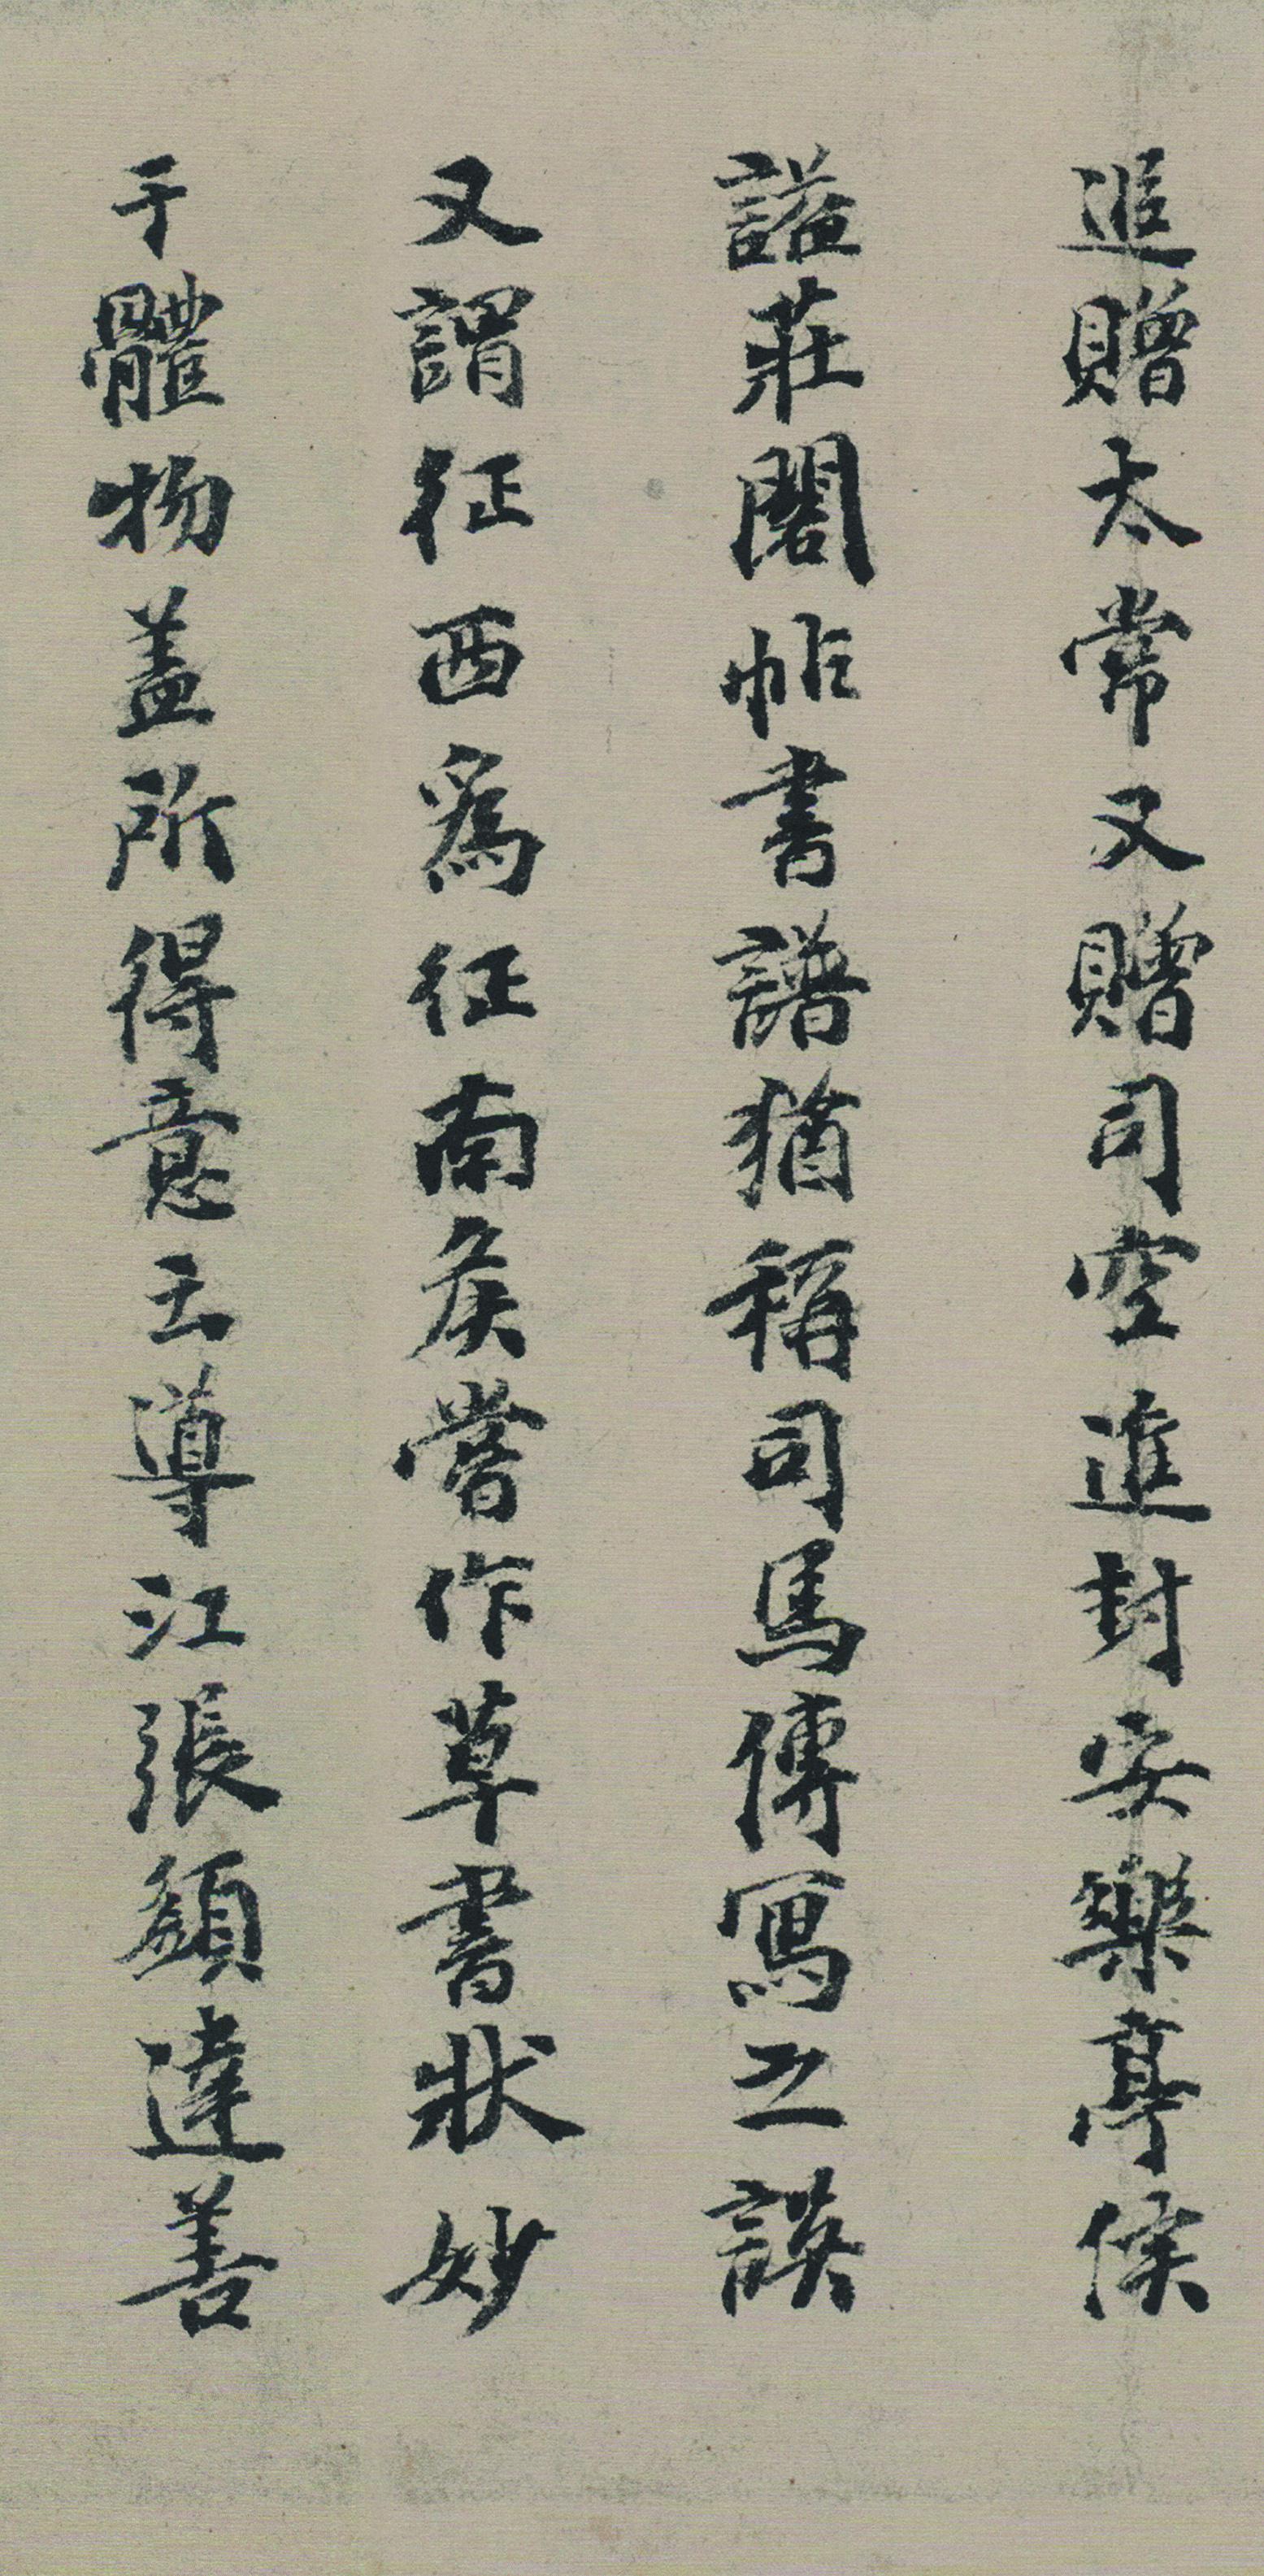 追贈太常又贈司空進封安樂亭侯
謚莊閣帖書譜猶稱司馬傳寫之誤
又謂征西爲征南矦嘗作草書狀妙
于體物盖所得意云導江張𩔰達善